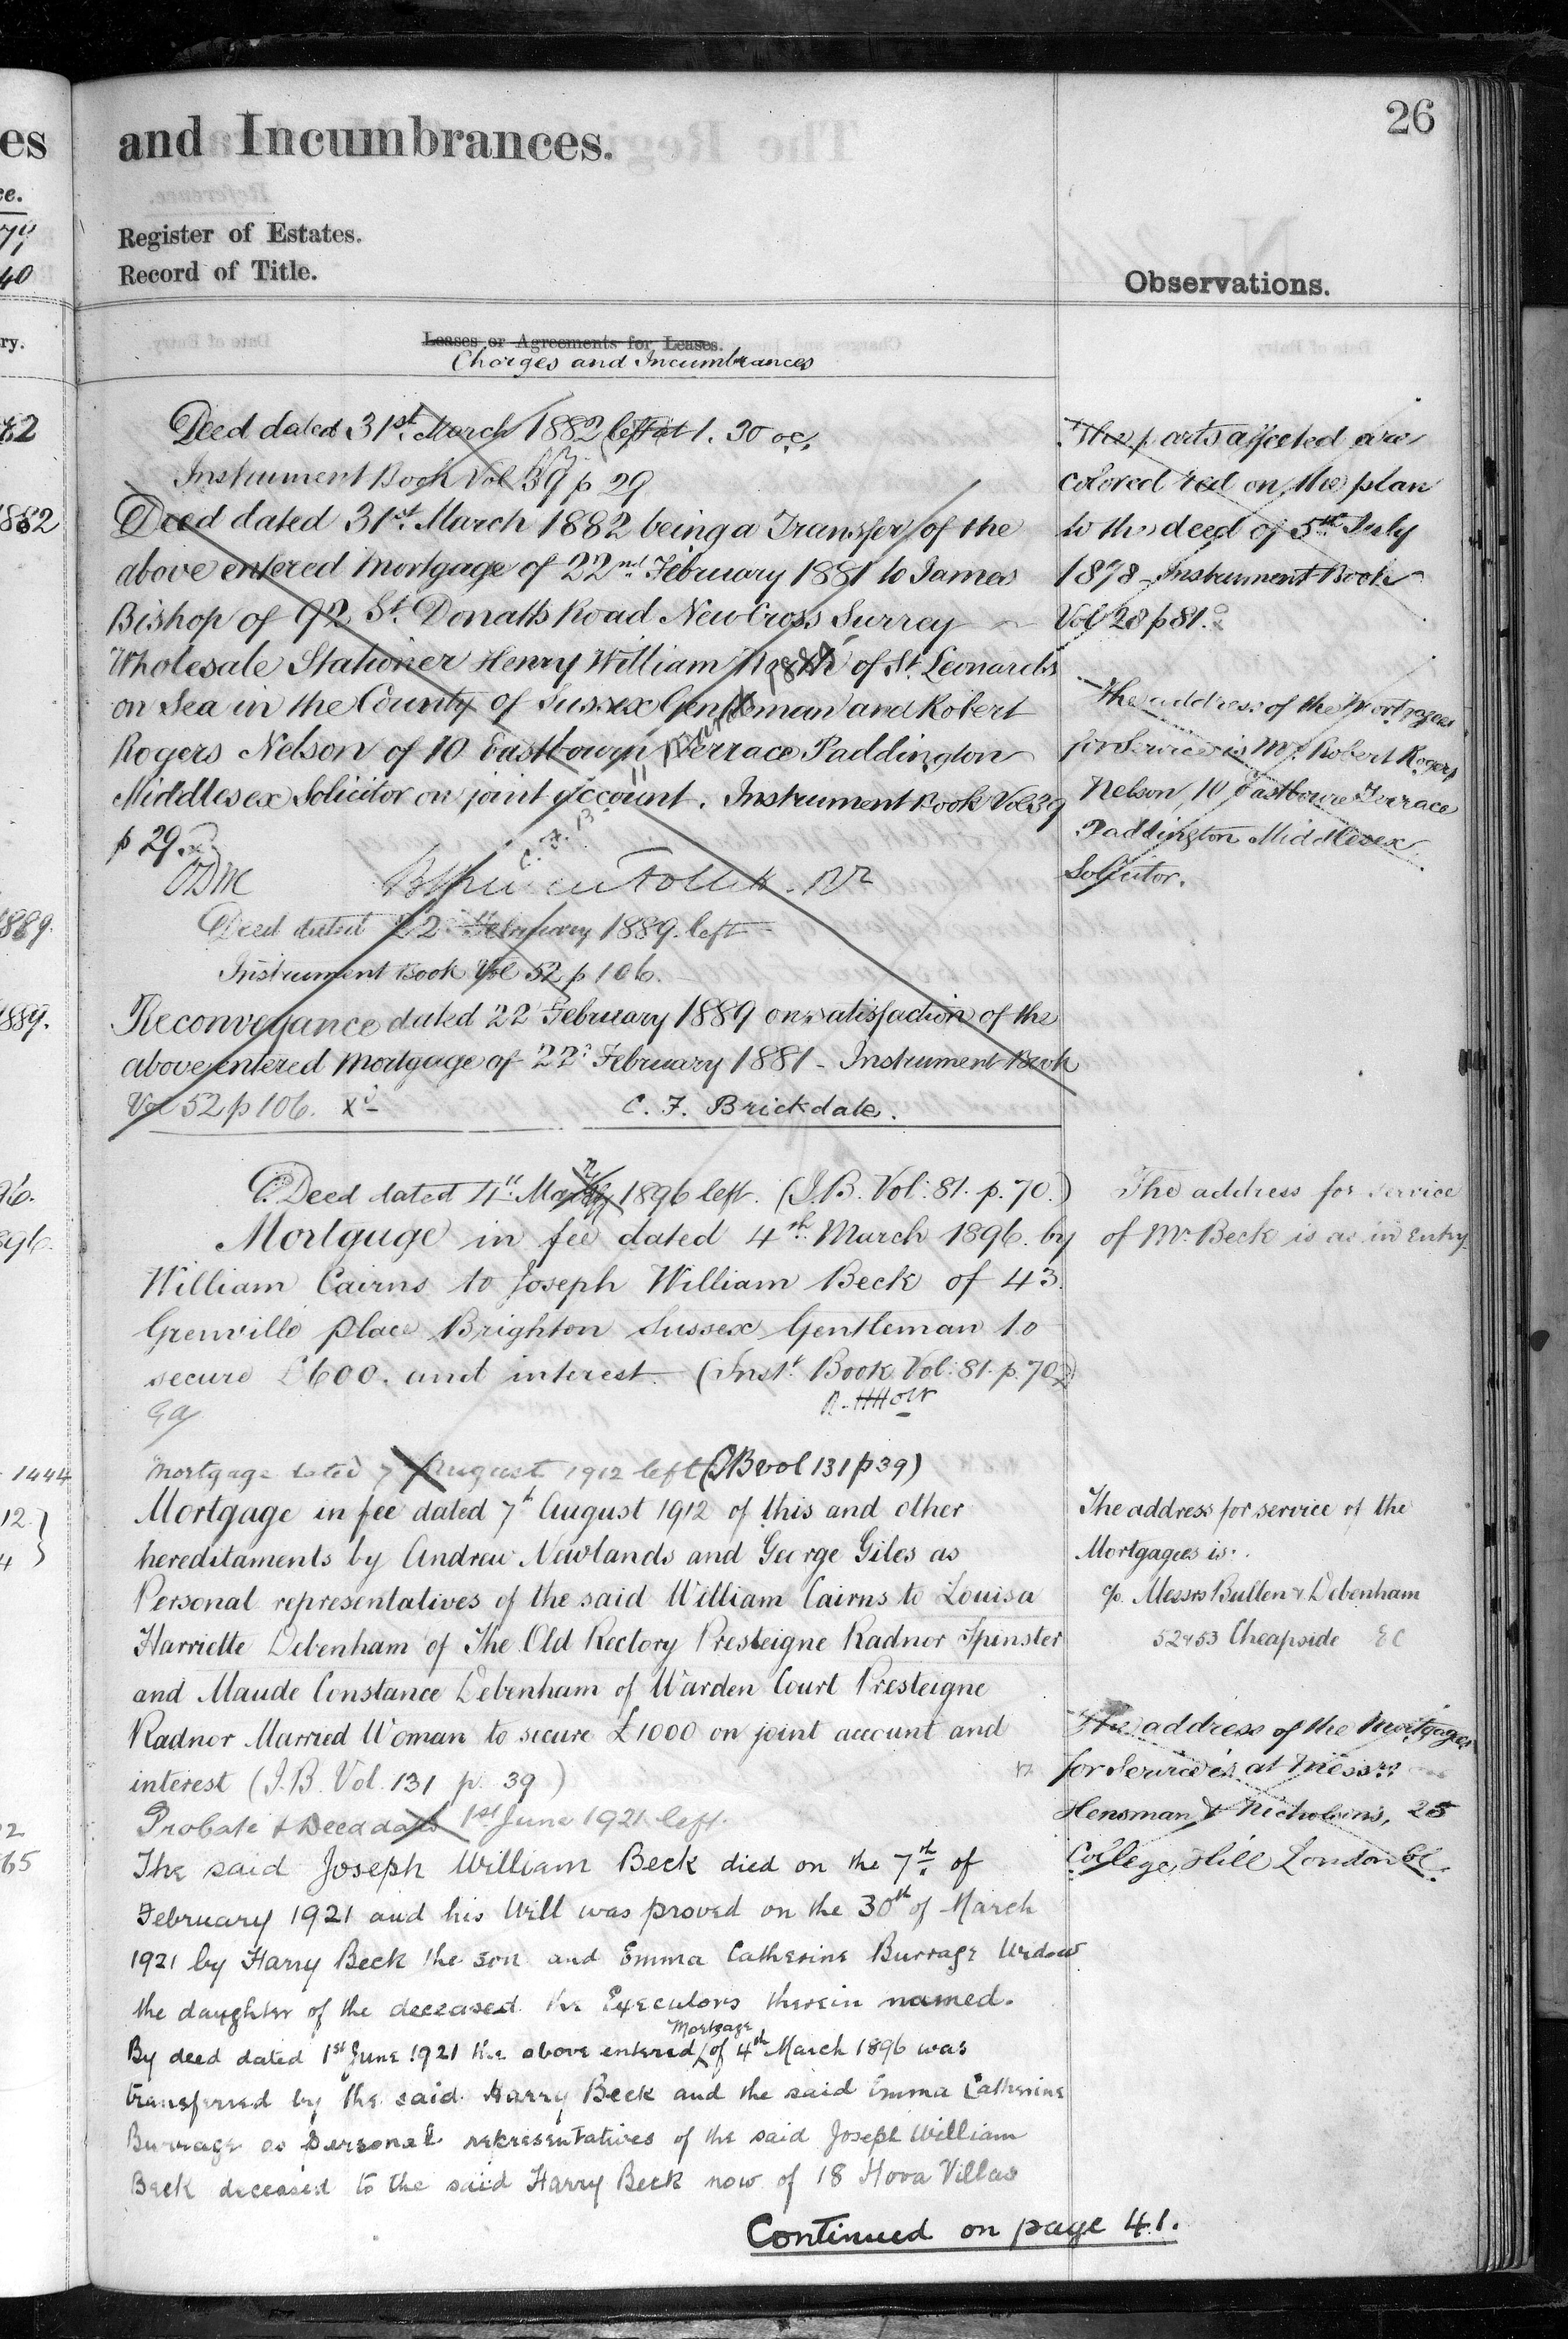 26
es
and Incumbrances.
ce.
Register of Estates.
40
Record of Title.
Observations.
ry.
Leases or Agreements for Leases.
Charges and Incumbrances
Deed dated 31st. March 1882 left at 1. 30 oc.
Instrument Book Vol 39 p 29
1882
Deed dated 31st. March 1882 being a Transfer of the
above entered Mortgage of 22nd February 1881 to James
Bishop of 92 St. Donatts Road New Cross Surrey
Wholesale Stationer Henry William of St. Leonards
on Sea in the County of Sussex Gentleman and Robert
Rogers Nelson of 10 Eastbourn Terrace Paddington
Middlesex Solicitor on joint account. Instrument Book Vol 39
p 29.
The parts affected are
colored red on the plan
to the deed of 5th July
1878 - Instrument Book
Vol 28 p 81.
The address of the Mortgagees
for Service is Mr. Robert Rogers
Nelson 10 Eastbourne Terrace
Paddington Middlesex
Solicitor.
1889.
Deed dated 22 February 1889. left
Instrument Book Vol 52 p 106.
1889.
Reconveyance dated 22 February 1889 on satisfaction of the
above entered Mortgage of 22d February 1881 - Instrument Book
Vol 52 p 106.
C. F. Brickdale.
96.
Deed dated 4th. 1896 left. (I.B. Vol: 81. p. 70.)
896.
Mortgage in fee dated 4th. March 1896. by
William Cairns to Joseph William Beck of 43.
Grenville place Brighton Sussex Gentleman to
secure £600. and interest. (Inst. Book Vol: 81. p. 70)
The address for service
of Mr. Beck is as in Entry.
1444
Mortgage dated 7 August 1912 left (IB vol 131 p 39)
12.
Mortgage in fee dated 7th August 1912 of this and other
4
hereditaments by Andrew Newlands and George Giles as
Personal representatives of the said William Cairns to Louisa
Harriette Debenham of The Old Rectory Presteigne Radnor Spinster
and Maude Constance Debenham of Warden Court Presteigne
Radnor Married Woman to secure £1000 on joint account and
interest (I.B. Vol. 131 p. 39)
The address for service of the
Mortgagees is:.
c/o. Messrs Bullen & Debenham
52 & 53 Cheapside EC
The address of the Mortgagee
for Service is at Messrs.
Hensman & Nicholson's, 25
College Hill London EC.
Probate & Deed dated 1st June 1921 left.
65
The said Joseph William Beck died on the 7th. of
February 1921 and his Will was proved on the 30th of March
1921 by Harry Beck the son and Emma Catherine Burrage Widow
the daughter of the deceased the Executors therein named.
Mortgage
By deed dated 1st June 1921 the above entered of 4th March 1896 was
transferred by the said Harry Beck and the said Emma Catherine
Burrage as Personal representatives of the said Joseph William
Beck deceased to the said Harry Beck now of 18 Hova Villas
Continued on page 41.